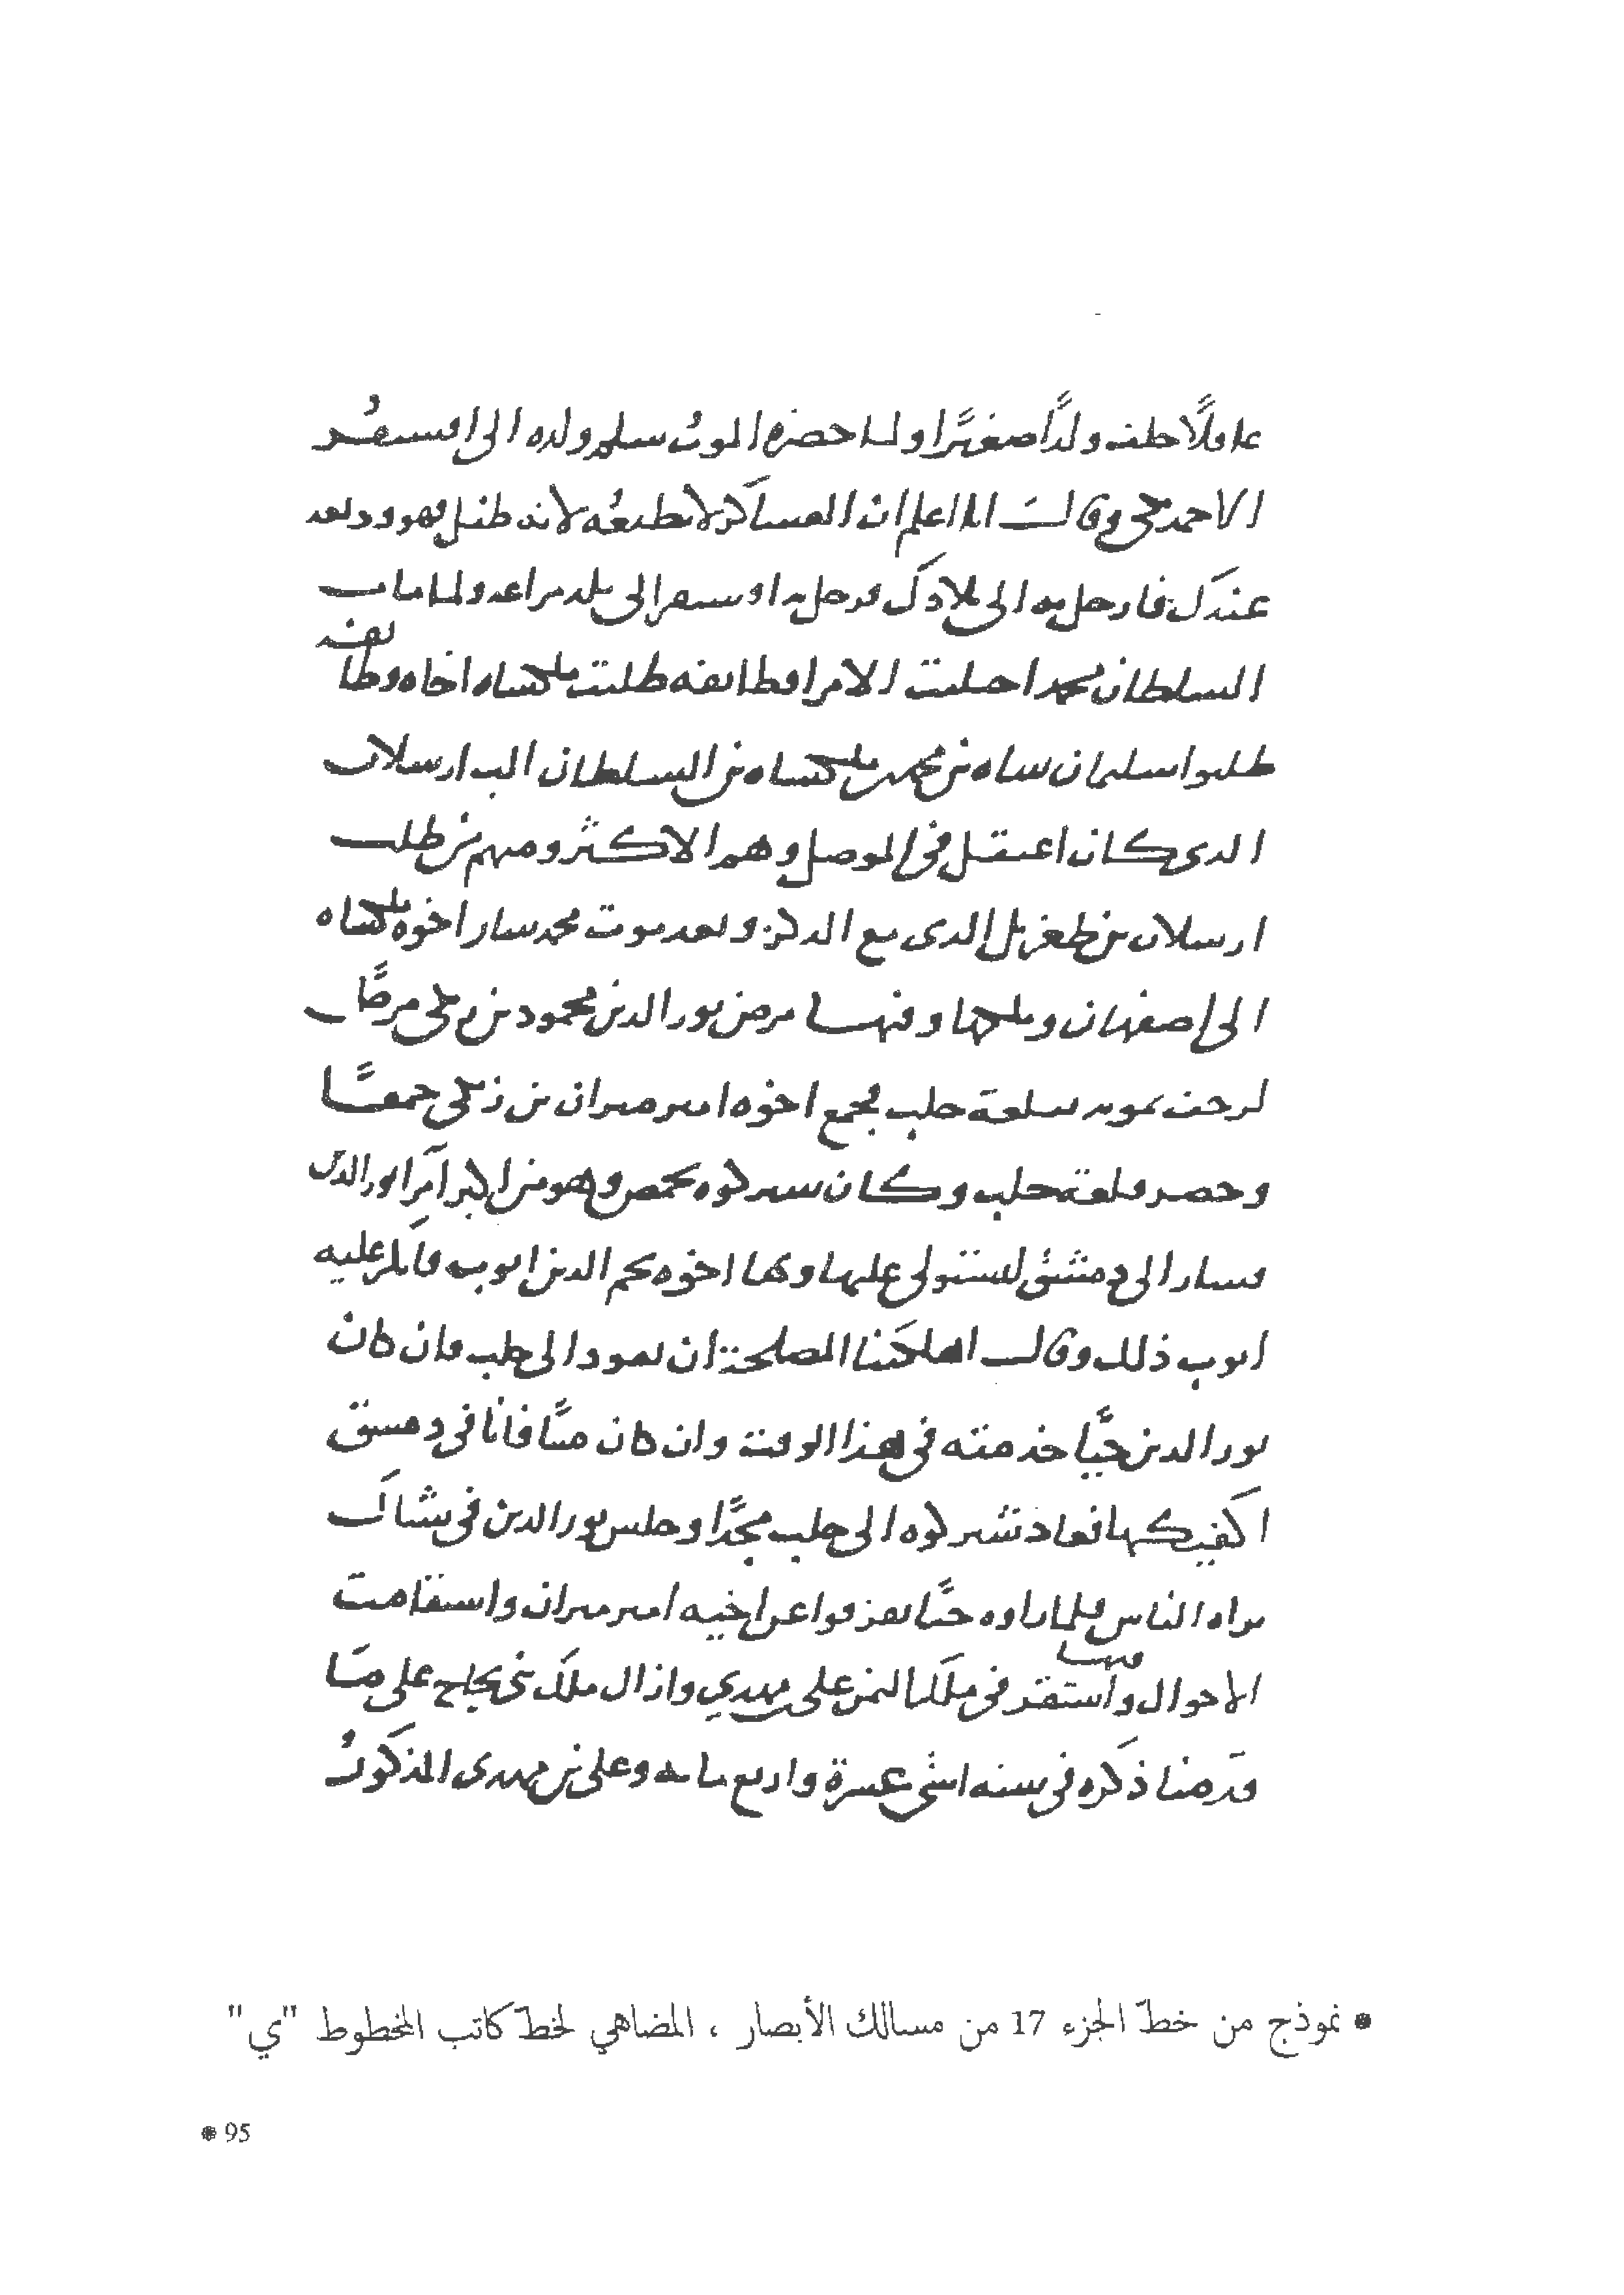 عاقلًا خلف ولدًا صغيرًا ولما حضره الموت سلم ولده الى اقسنقر
الاحمديلي وقالت انا اعلم ان العساكر لا تطيعه لانه طفل وهو وديعه
عندك فارحل به الى بلادك فرحل به اقسنقر الى بلد مراغه ولما مات
السلطان محمد اختلفت الامرا فطايفه طلبت ملكشاه اخاه وطايفه
طلبوا سليمان شاه بن محمد بن ملكشاه بن السلطان الب ارسلان
الذي كان اعتقل في الموصل وهم الاكثر ومنهم من طلب
ارسلان بن طغربل الذي مع الدكز وبعد موت محمد سار اخوه ملكشاه
الى اصفهان وملكها وفيها مرض نور الدين محمود بن زنكي مرضا
ارجف بموته بقلعة حلب فجمع اخوه امير ميران بن زنكي جمعًا
وحصر قلعة حلب وكان شيركوه بحمص وهو من اكبر امرا نور الدين
فسار الى دمشق ليستولي عليها وبها اخوه نجم الدين ايوب فانكر عليه
ايوب ذلك وقال اهلكتنا المصلحة ان تعود الى حلب فان كان
نور الدين حيًّا خدمته في هذا الوقت وان كان ميتًا فانا في دمشق
اكفيكها فعاد شيركوه الى حلب مجدًّا وجلس نور الدين في شباك
يراه الناس فلما راوه حيًّا تفرقوا عن اخيه امير ميران واستقامت
الاحوال وفيها استقر في ملك اليمن علي بن مهدي وازال ملك بني نجاح على ما
قدمنا ذكره في سنه اثني عشرة واربع مايه وعلي بن مهدي المذكور
* نموذج من خطّ الجزء 17 من مسالك الأبصار ، المضاهي لخطّ كاتب المخطوط "ي"
* 95